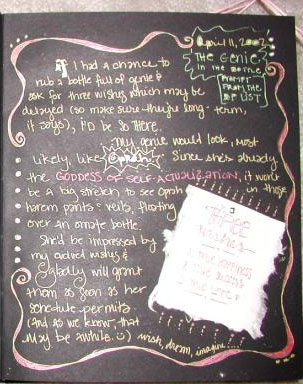 April 11, 2002
THE GENIE
IN THE BOTTLE
PROMPT
FROM THE
LIST
If I had a chance to
rub a bottle full of genie &
ask for three wishes which may be
delayed (so make sure they're long-term,
it says), I'D be so there.
my genie would look, most
Likely, like Oprah. Since she's already
the GODDESS OF SELF-ACTUALIZATION, it won't
be a big stretch to see Oprah in those
harem pants & veils, floating
over an ornate bottle.
She'd be impressed by
my wishes &
will grant
them as soon as her
schedule permits.
(And as we know, that
may be awhile. :) wish, dream, imagine....
Three
WISHES